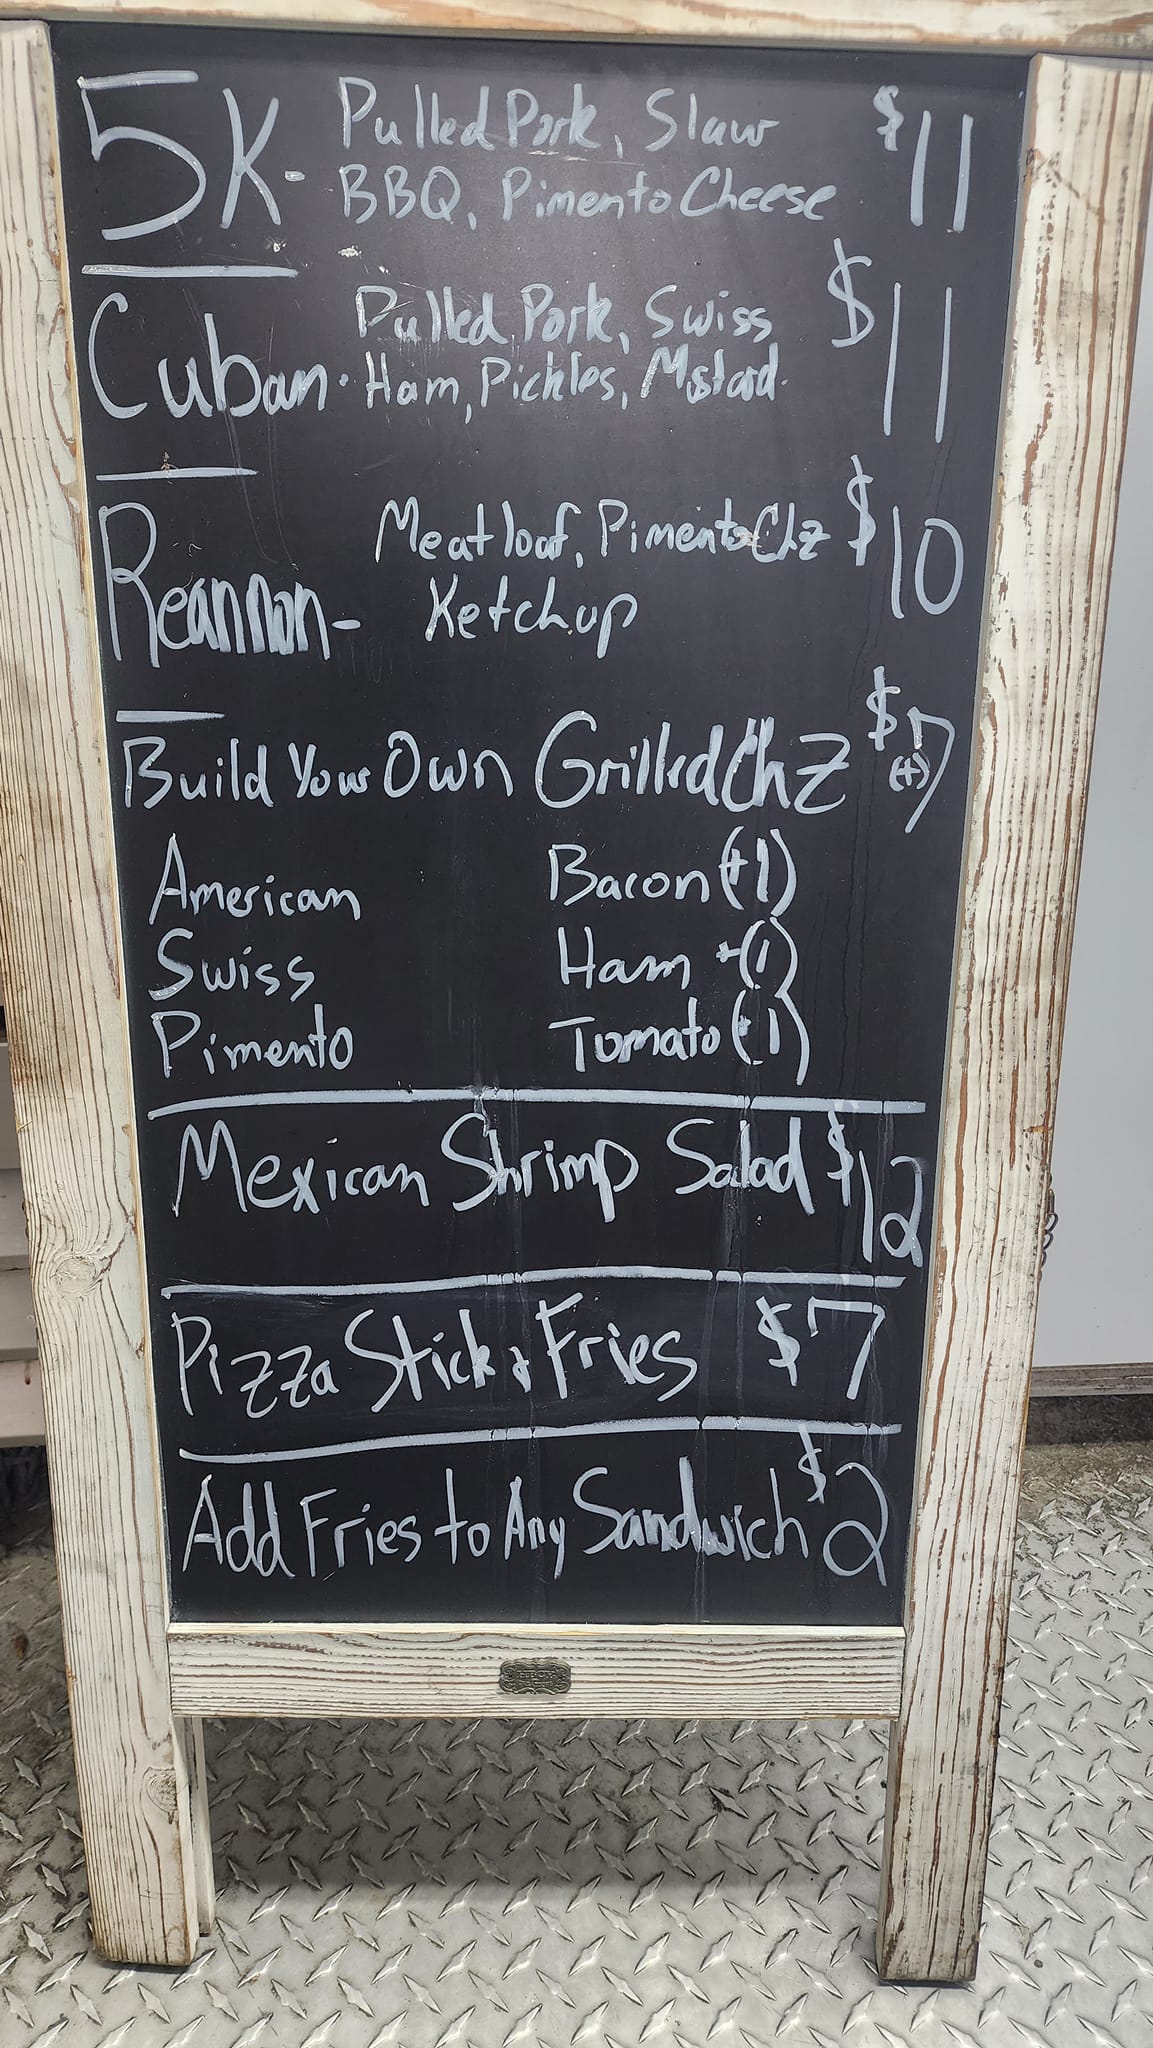 5K- Pulled Pork, Slaw $11
BBQ, Pimento Cheese
Cuban. Pulled Pork, Swiss $11
Ham, Pickles, Mstard.
Reannon- Meatloaf, Pimento Chz $10
Ketchup
Build Your Own Grilled Chz $7
(+)
American Bacon (+1)
Swiss Ham +(1)
Pimento Tomato (+1)
Mexican Shrimp Salad $12
Pizza Stick & Fries $7
Add Fries to Any Sandwich $2